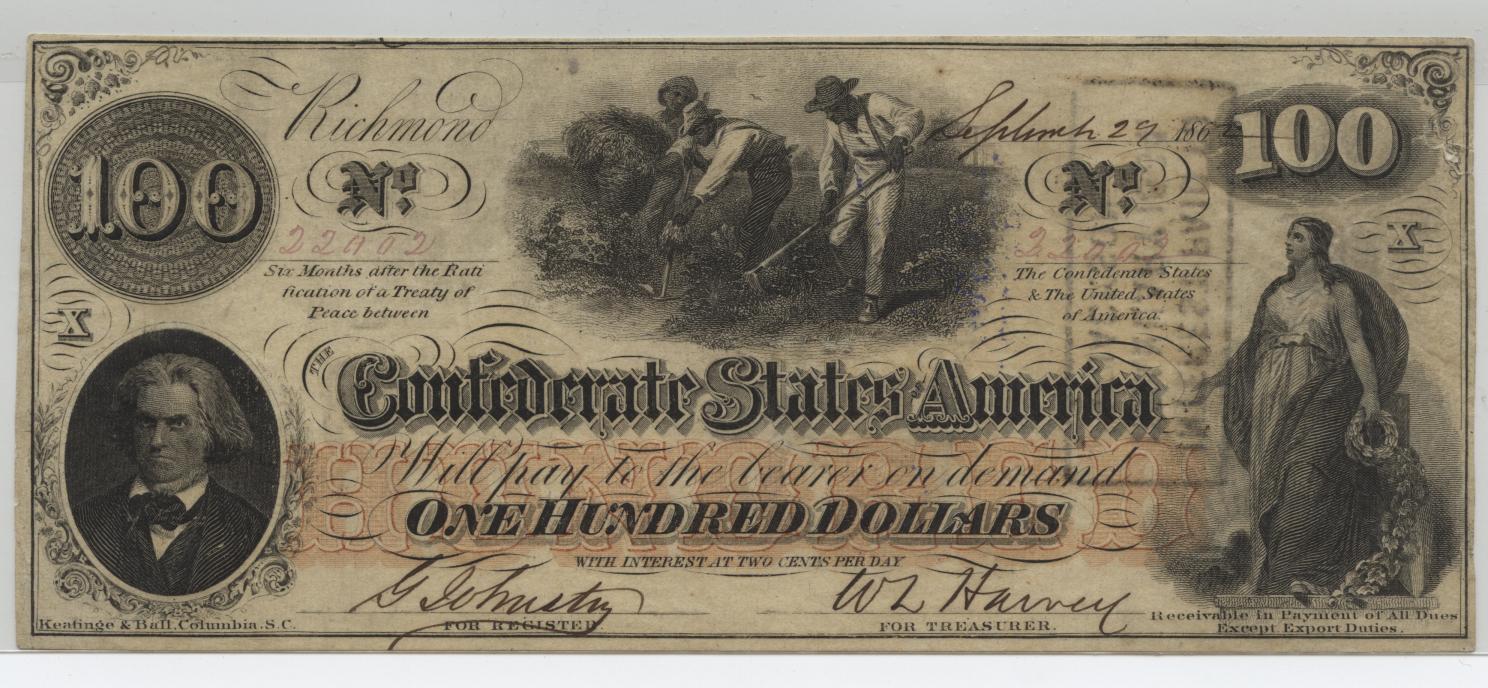 100
Richmond
September 29 1862
100
No.
No.
22902
22902
Six Months after the Rati
fication of a Treaty of
Peace between
The Confederate States
& The United States
of America.
X
X
THE
Confederate States of America
HUNDRED
Will pay to the bearer on demand
ONE HUNDRED DOLLARS
WITH INTEREST AT TWO CENTS PER DAY
G Johnston
W L Harvey
Keatinge & Ball, Columbia, S.C.
FOR REGISTER.
FOR TREASURER.
Receivable in Payment of All Dues
Except Export Duties.